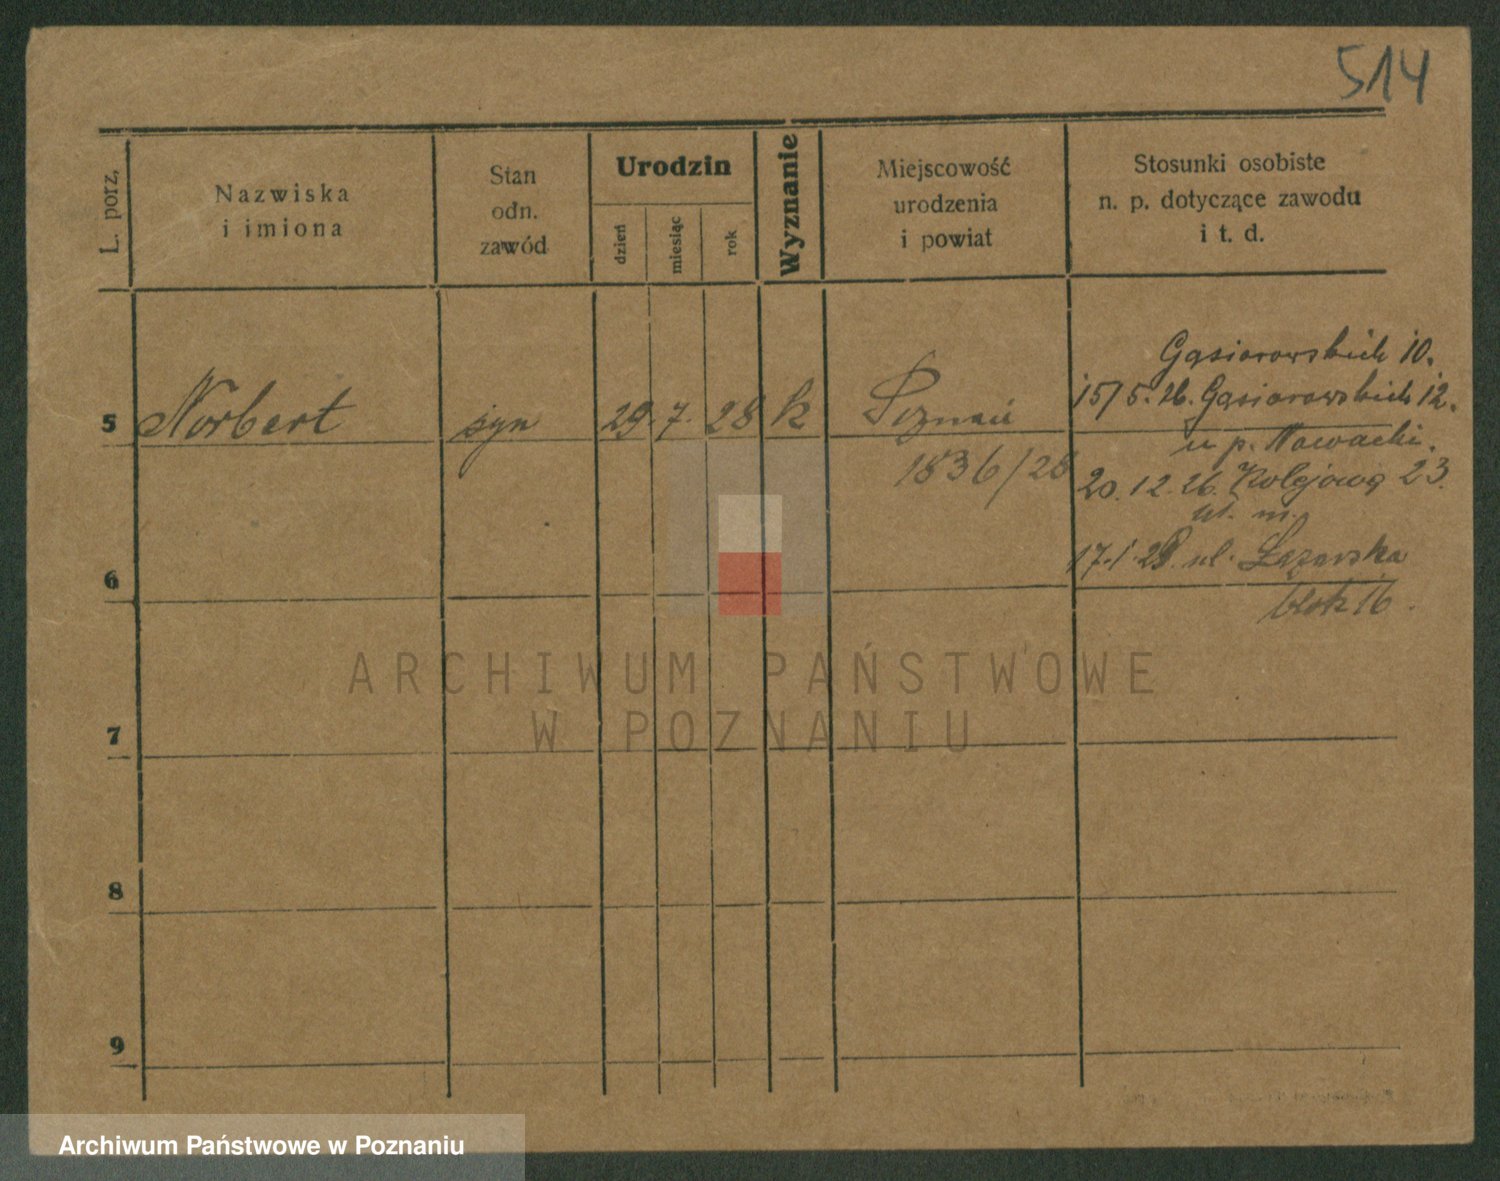 514
L. porz,
Nazwiska
i imiona
Stan
odn.
zawód
Urodzin
dzień
miesiąc
rok
Wyznanie
Miejscowość
urodzenia
i powiat
Stosunki osobiste
n. p. dotyczące zawodu
i t. d.
Gąsiorowskich 10.
15/5.26. Gąsiorowskich 12.
5 Norbert syn 29. 7. 28 k Poznań
u p. Nowacki.
1836/28
20.12.26. Kolejowa 23.
17.1.29. ul. Łazarska
6
blok 16.
7
8
9
ARCHIWUM PAŃSTWOWE
W POZNANIU
Archiwum Państwowe w Poznaniu